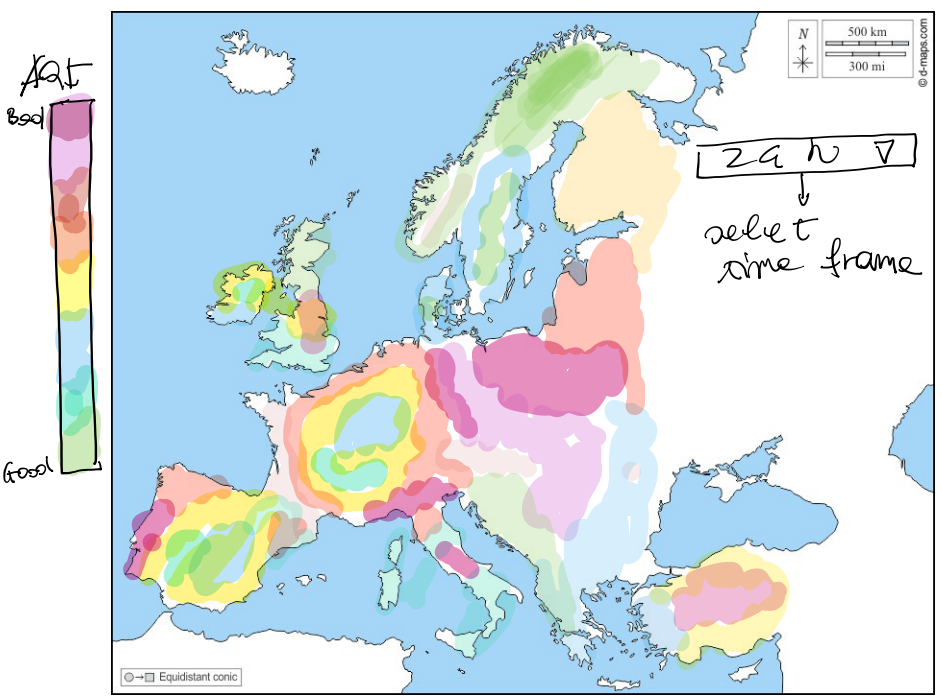 AQI
Bad
Good
N
500 km
300 mi
© d-maps.com
24 h ▽
select
time frame
Equidistant conic